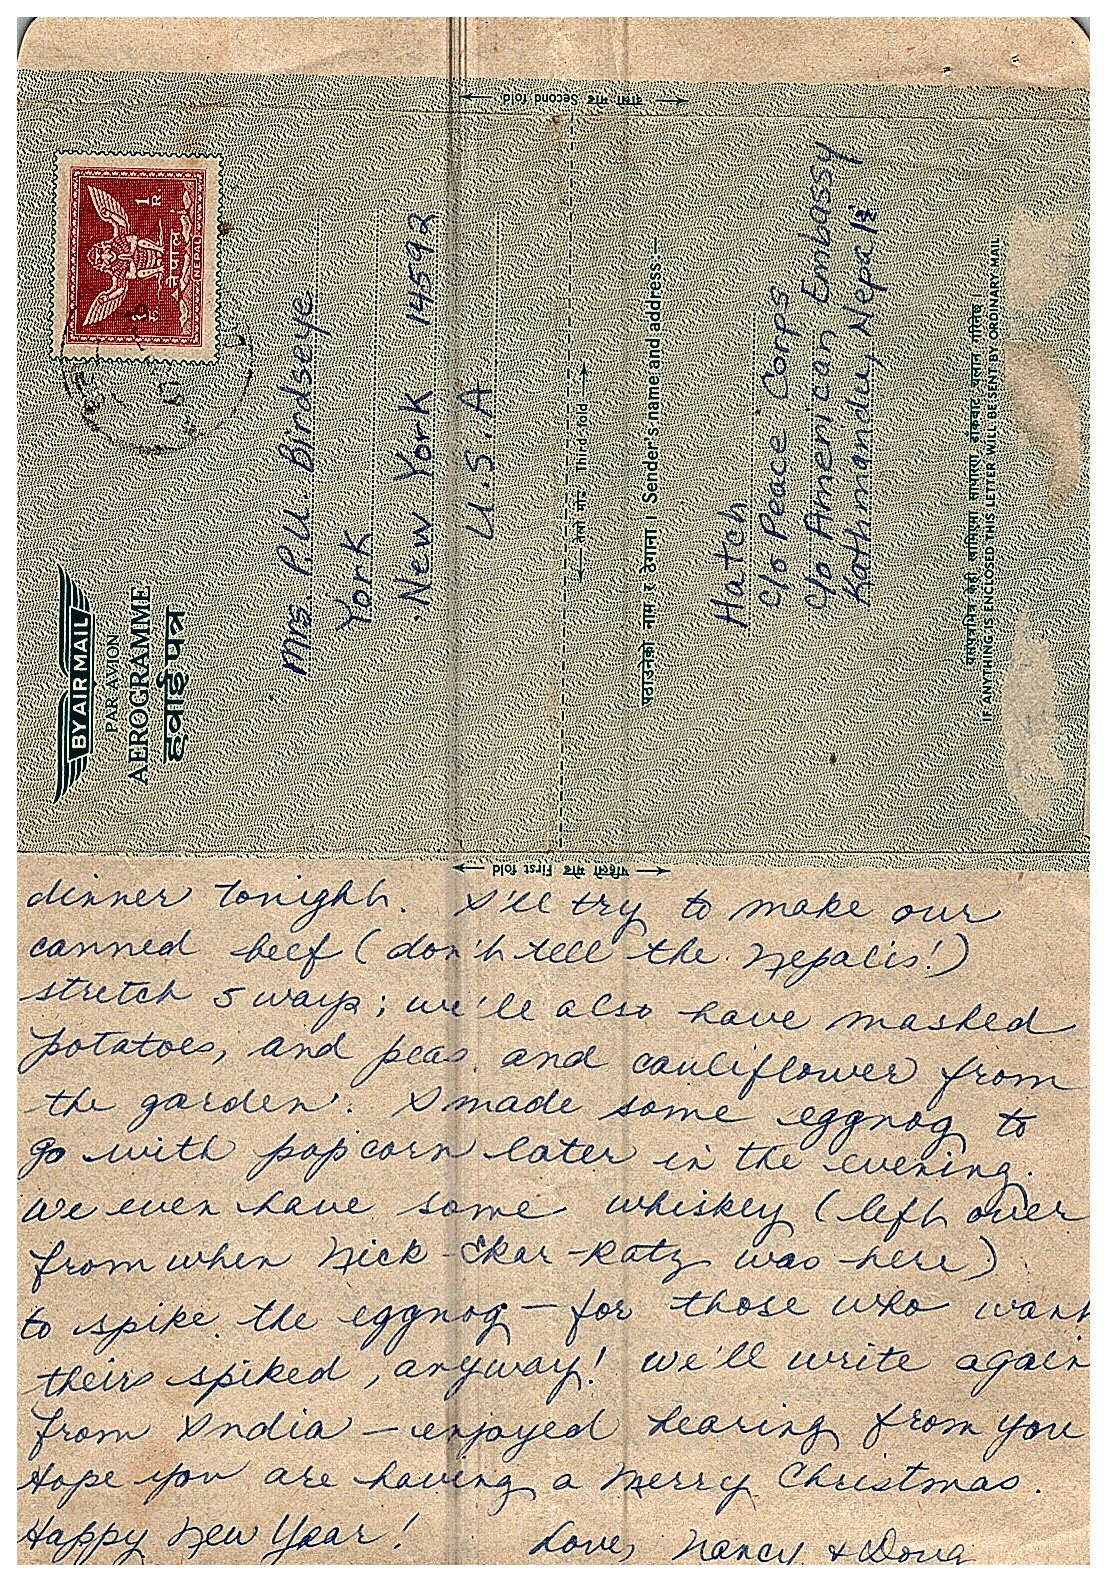 दोस्रो मोड Second fold
1
R.
नेपाल
NEPAL
BY AIR MAIL
PAR AVION
AEROGRAMME
हवाई पत्र
Mrs. P.U. Birdseye
York
New York 14592
U.S.A
तेस्रो मोड Third fold
पठाउनेको नाम र ठेगाना । Sender's name and address
Hatch
c/o Peace Corps
c/o American Embassy
Kathmandu, Nepal
IF ANYTHING IS ENCLOSED THIS LETTER WILL BE SENT BY ORDINARY MAIL
पहिलो मोड First fold
dinner tonight. I'll try to make our
canned beef (don't tell the Nepalis!)
stretch 5 ways; we'll also have mashed
potatoes, and peas and cauliflower from
the garden. I made some eggnog to
go with popcorn later in the evening.
We even have some whiskey (left over
from when Nick was here)
to spike the eggnog — for those who want
theirs spiked, anyway! We'll write again
from India — enjoyed hearing from you
Hope you are having a Merry Christmas.
Happy New Year! Love, Nancy & Doug